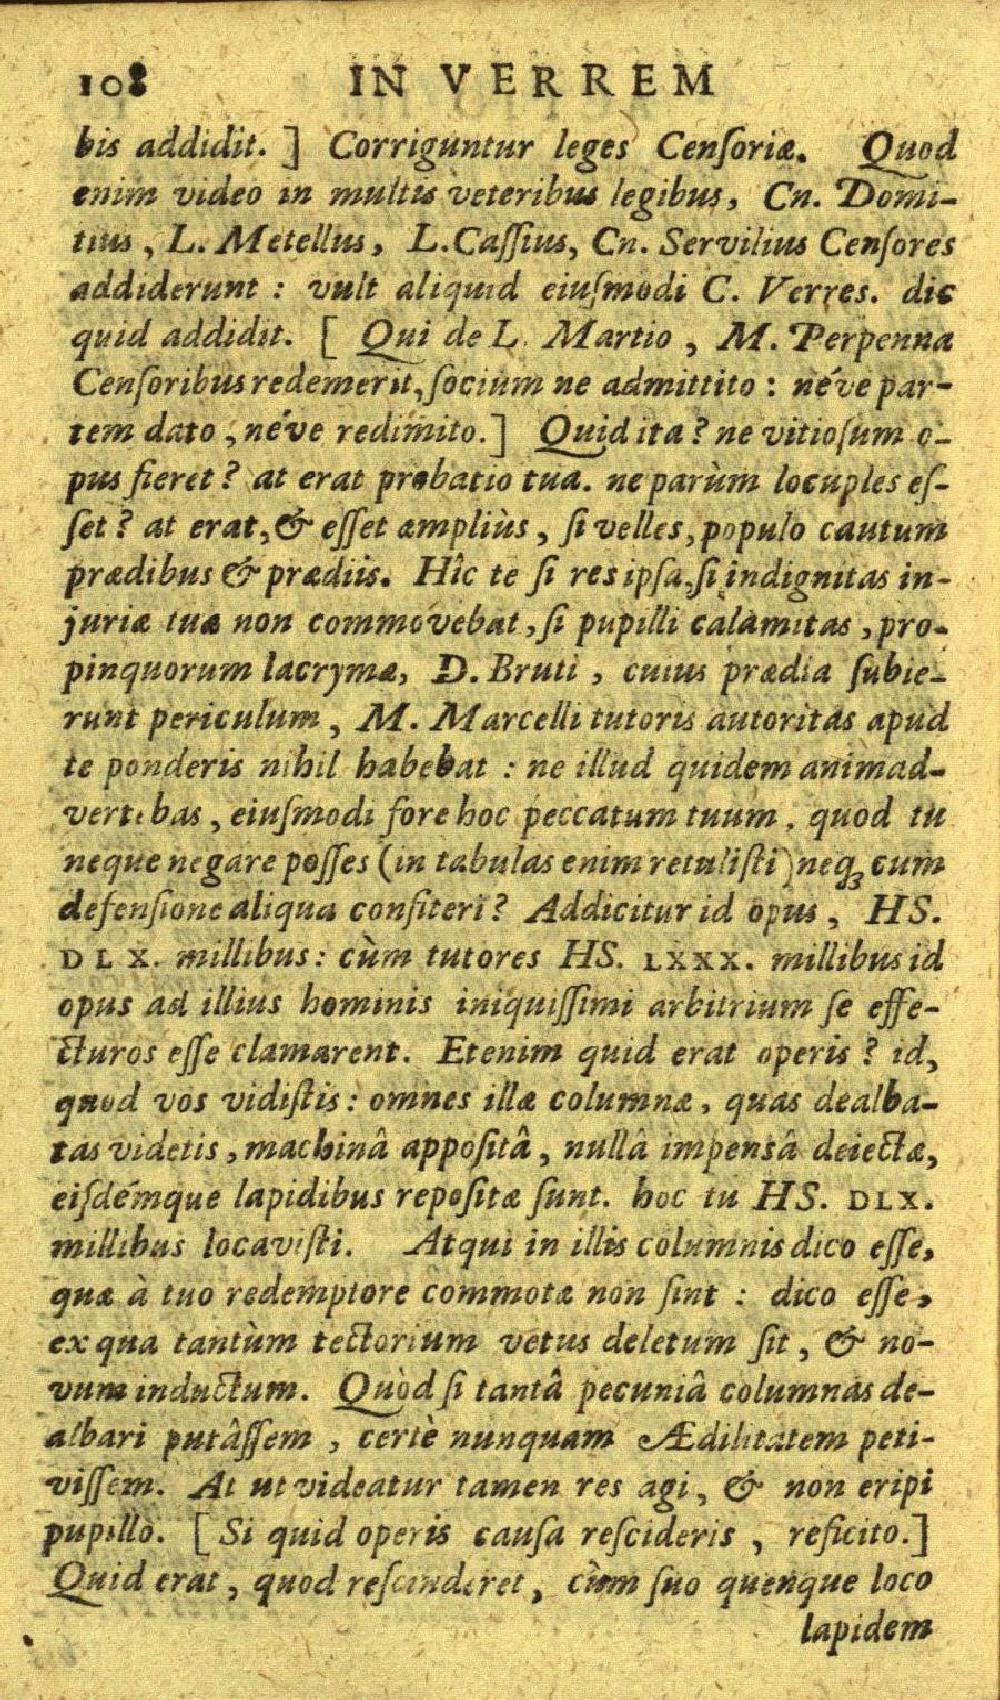 108 IN VERREM
bis addidit. ] Corriguntur leges Cenſoriæ. Quod
enim video in multis veteribus legibus, Cn. Domi-
tius, L. Metellus, L.Caſſius, Cn. Servilius Cenſores
addiderunt : vult aliquid eiuſmodi C. Verres. dic
quid addidit. [ Qui de L. Martio, M. Perpenna
Cenſoribus redemerit, ſocium ne admittito : néve par-
tem dato, néve redimito.] Quid ita? ne vitioſum o-
pus fieret? at erat probatio tua. ne parùm locuples eſ-
ſet? at erat, & eſſet ampliùs, ſi velles, populo cautum
prædibus & prædiis. Hîc te ſi res ipſa, ſi indignitas in-
juriæ tuæ non commovebat, ſi pupilli calamitas, pro-
pinquorum lacrymæ, D. Bruti, cuius prædia ſubie-
runt periculum, M. Marcelli tutoris autoritas apud
te ponderis nihil habebat : ne illud quidem animad-
vertebas, eiuſmodi fore hoc peccatum tuum, quod tu
neque negare poſſes (in tabulas enim retuliſti) neq; cum
defenſione aliqua confiteri? Addicitur id opus, HS.
DLX. millibus: cùm tutores HS. LXXX. millibus id
opus ad illius hominis iniquiſſimi arbitrium ſe effe-
cturos eſſe clamarent. Etenim quid erat operis? id,
quod vos vidiſtis: omnes illæ columnæ, quas dealba-
tas videtis, machinâ appoſitâ, nullâ impensâ deiectæ,
eiſdémque lapidibus repoſitæ ſunt. hoc tu HS. DLX.
millibus locaviſti. Atqui in illis columnis dico eſſe,
quæ à tuo redemptore commotæ non ſint : dico eſſe,
ex qua tantùm tectorium vetus deletum ſit, & no-
vum inductum. Quòd ſi tantâ pecuniâ columnas de-
albari putâſſem, certè nunquam Ædilitatem peti-
viſſem. At ut videatur tamen res agi, & non eripi
pupillo. [ Si quid operis cauſa reſcideris, reficito.]
Quid erat, quod reſcinderet, cùm ſuo quenque loco
lapidem